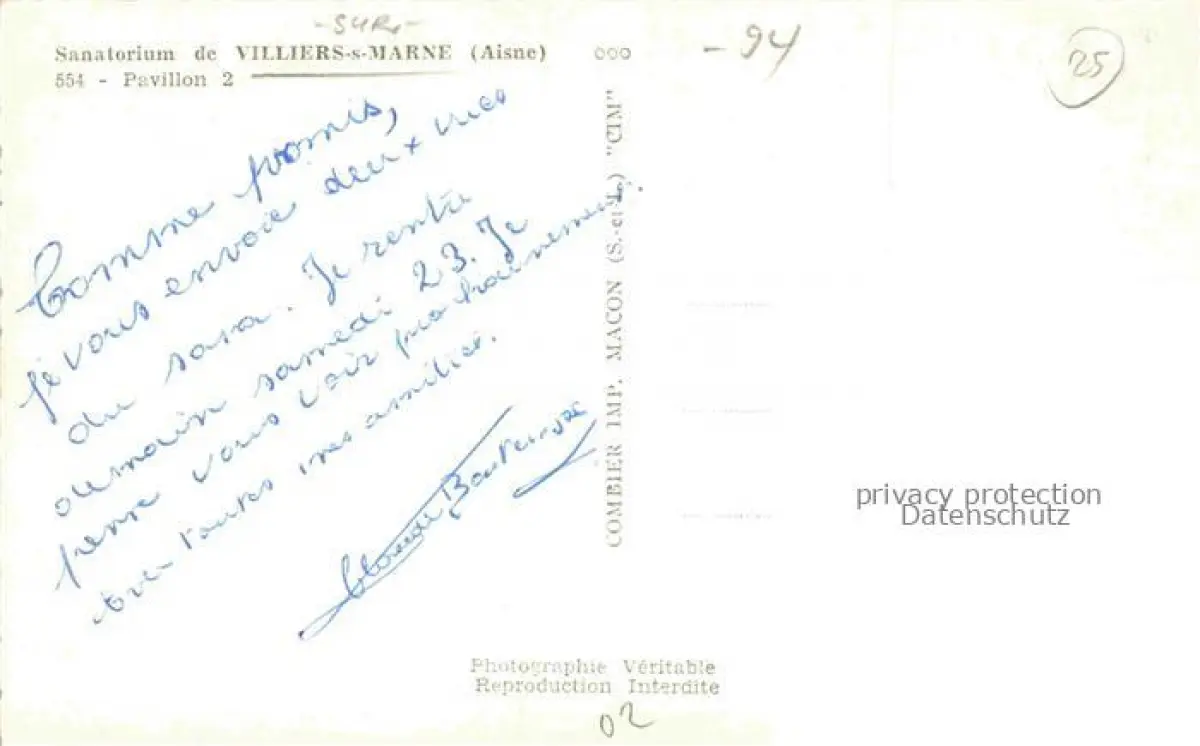 -SUR-
Sanatorium de VILLIERS-s-MARNE (Aisne)
554 - Pavillon 2
ooo
- 94
25
Comme promis,
je vous envoie deux vues
du sana. Je rentre
demain samedi 23. Je
pense vous voir prochainement.
Avec toutes mes amitiés.
Claude
COMBIER IMP. MACON (S.-et-L.) "CIM"
privacy protection
Datenschutz
Photographie Véritable
Reproduction Interdite
02